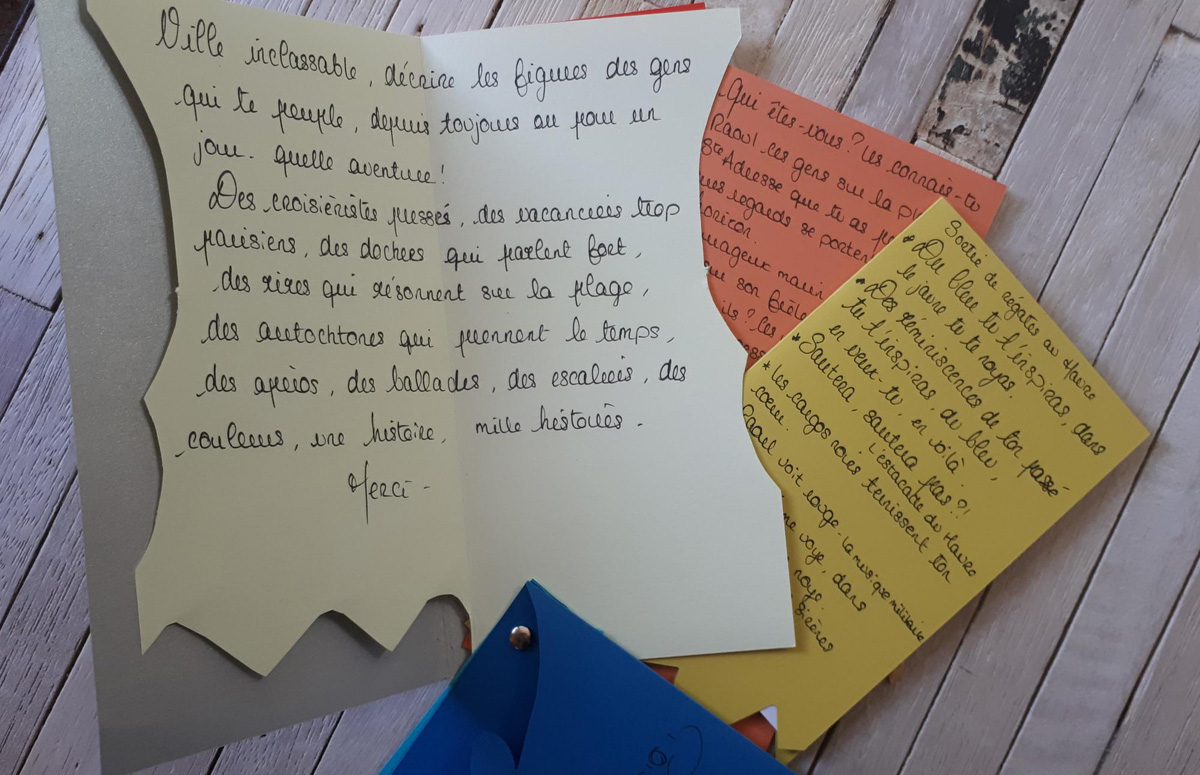 Ville inclassable, décrire les figures des gens
qui te peuple, depuis toujours ou pour un
jour. quelle aventure!
Des croisièristes pressés, des vacanciers trop
parisiens, des dockers qui parlent fort,
des rires qui résonnent sur la plage,
des autochtones qui prennent le temps,
des apéros, des ballades, des escaliers, des
couleurs, une histoire, mille histoires.
Merci -
Qui êtes-vous? Les connais-tu
Raoul ces gens sur la
Ste Adresse que tu as
regards se porten
horizon.
nuageux marin
son
ils? Ces
Sortie de régates au Havre
* Du bleu tu t'inspiras, dans
le jaune tu te noyas.
* Des réminiscences de ton passé
tu t'inspiras, du bleu,
en veux-tu, en voilà.
* Sautera, sautera pas?!
l'estacade du Havre
* Les cargos noirs ternissent ton
coeur.
Raoul voit rouge. La musique militaire
voye, dans